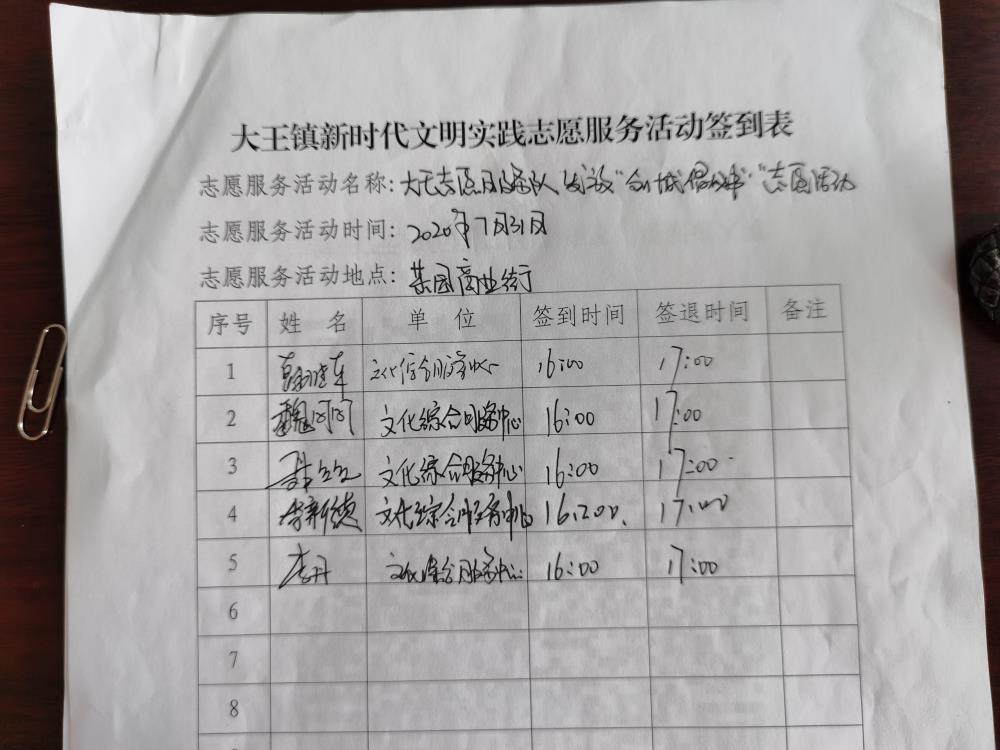 大王镇新时代文明实践志愿服务活动签到表
志愿服务活动名称: 大王志愿服务队发放"创城倡议书"志愿活动
志愿服务活动时间: 2020年7月31日
志愿服务活动地点: 某园商业街
序号 姓 名 单 位 签到时间 签退时间 备注
1 文化综合服务中心 16:00 17:00
2 魏 文化综合服务中心 16:00 17:00
3 文化综合服务中心 16:00 17:00
4 李新德 文化综合服务中心 16:00 17:00
5 李丹 文化综合服务中心 16:00 17:00
6
7
8